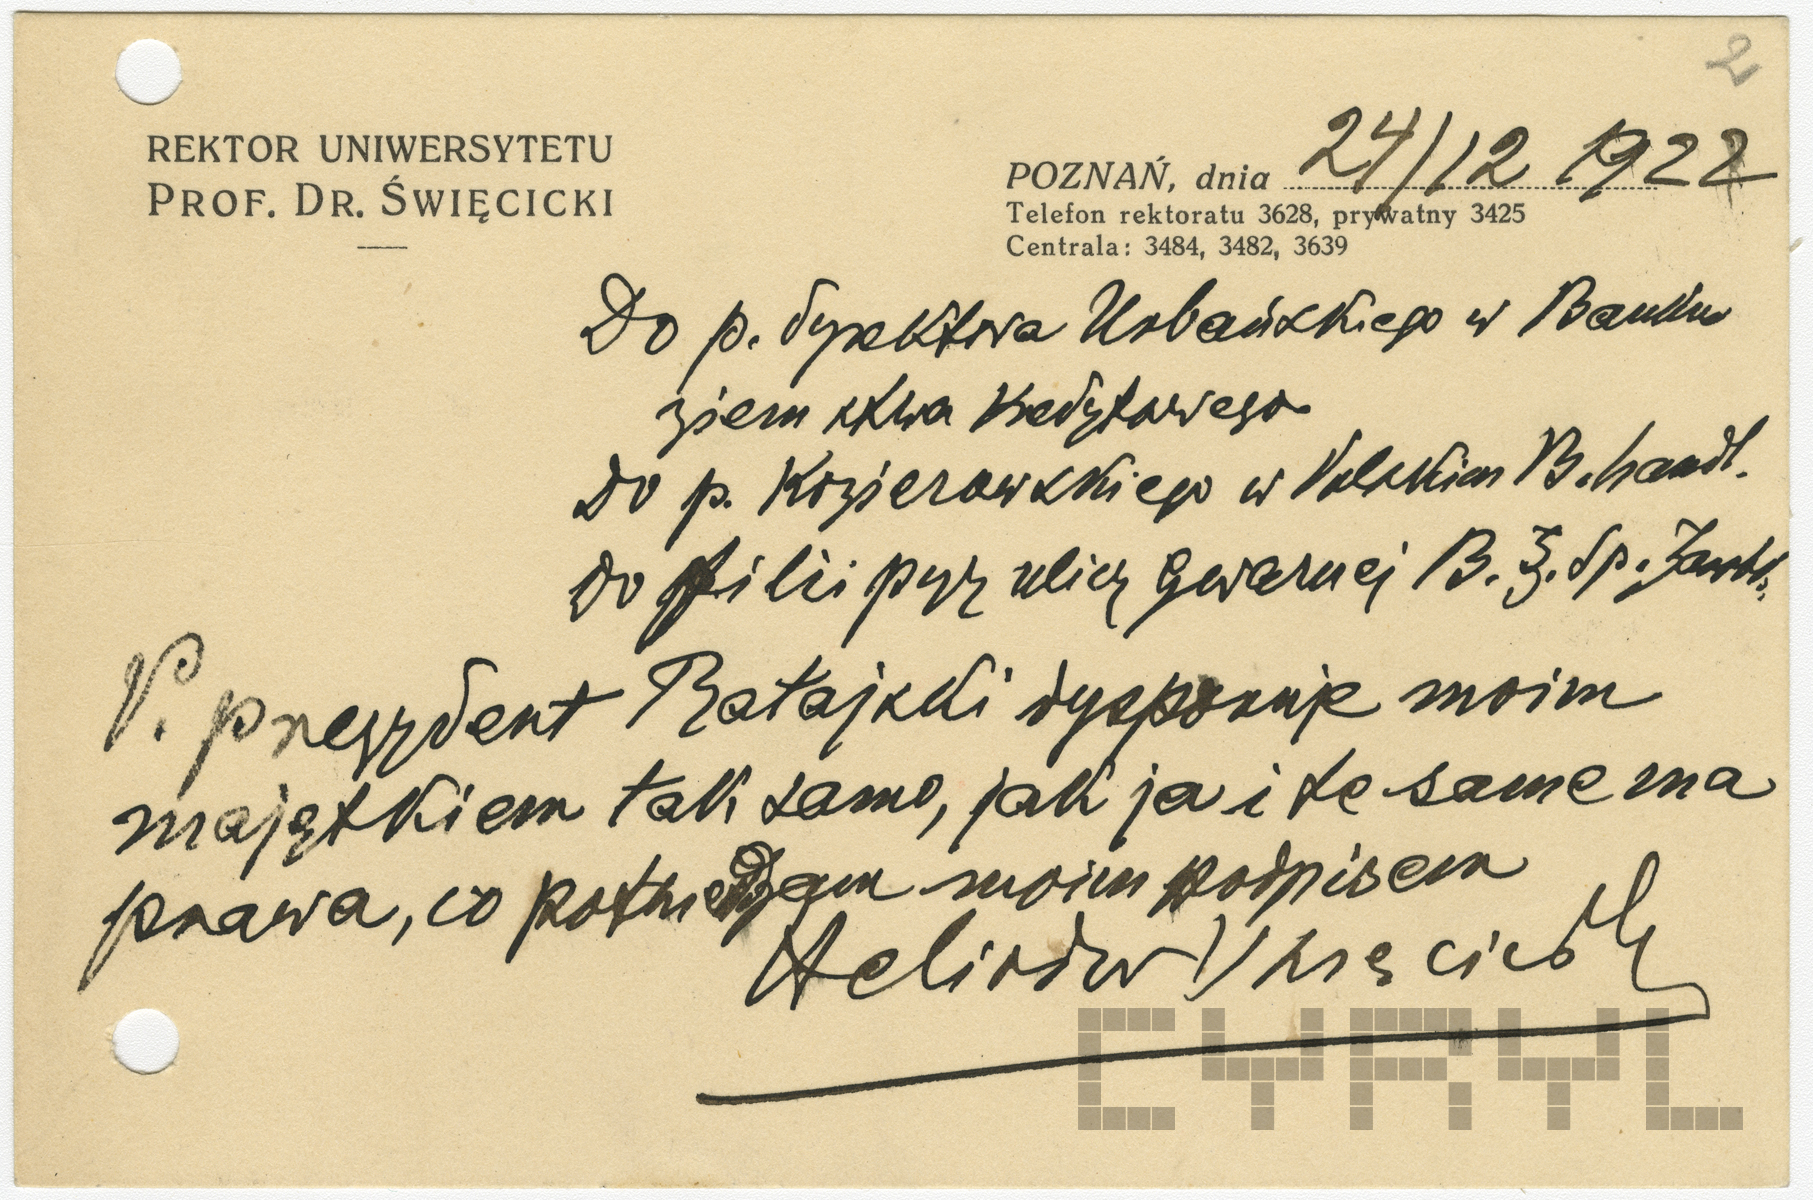 2
REKTOR UNIWERSYTETU
PROF. DR. ŚWIĘCICKI
POZNAŃ, dnia 24/12 1922
Telefon rektoratu 3628, prywatny 3425
Centrala: 3484, 3482, 3639
Do p. dyrektora Urbańskiego w Banku
ziemstwa Kredytowego
Do p. Kozierowskiego w Polskim B. handl.
Do filii przy ulicy Gwarnej B. Z. Sp. Zarobk.
P. prezydent Ratajski dysponuje moim
majątkiem tak samo, jak ja i te same ma
prawa, co potwierdzam moim podpisem
Heliodor Święcicki
CYRYL